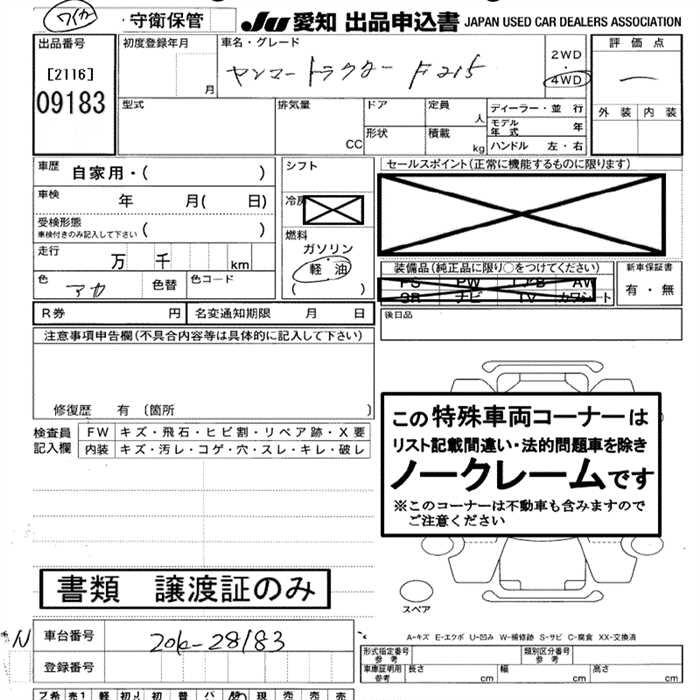 ワイカ 守衛保管 JU 愛知 出品申込書 JAPAN USED CAR DEALERS ASSOCIATION
出品番号
[2116]
09183
初度登録年月
月
車名・グレード
ヤンマートラクター F215
2WD
・
4WD
評価点
ー
外装 内装
型式
排気量
CC
ドア
形状
定員
人
積載
kg
ディーラー・並行
モデル年式 年
ハンドル 左・右
車歴 自家用・( )
車検 年 月( 日)
受検形態
車検付きのみ記入して下さい ( )
走行 万 千 km
色 アカ 色替 色コード
シフト
冷房
燃料
ガソリン
軽油
( )
セールスポイント(正常に機能するものに限ります)
装備品(純正品に限り○をつけてください)
PS PW エアB AW
SR ナビ TV カワシート
新車保証書
有・無
R券 円 名変通知期限 月 日
後日品
注意事項申告欄(不具合内容等は具体的に記入して下さい)
修復歴 有 〔箇所 〕
検査員記入欄
FW キズ・飛石・ヒビ割・リペア跡・X要
内装 キズ・汚レ・コゲ・穴・スレ・キレ・破レ
この特殊車両コーナーは
リスト記載間違い・法的問題車を除き
ノークレームです
※このコーナーは不動車も含みますので
ご注意ください
スペア
書類 譲渡証のみ
A-キズ E-エクボ U-凹み W-補修跡 S-サビ C-腐食 XX-交換済
N 車台番号 20K-28183
登録番号
形式指定番号
参考
類別区分番号
参考
車庫証明用
参考
長さ cm 幅 cm 高さ cm